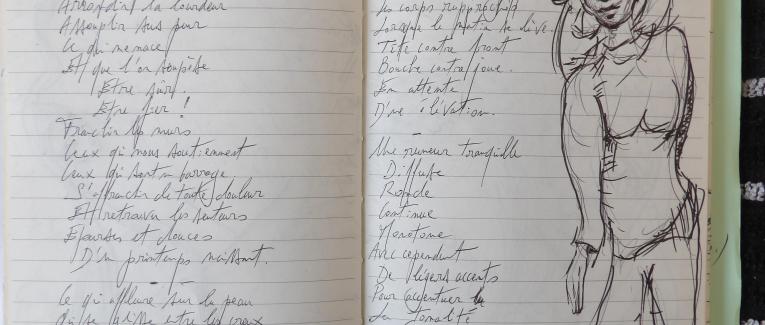 Arrondir la lourdeur
Assouplir sans peur
Ce qui menace
Et que l'on soupèse
Être sûr.
Être fier !
Franchir les murs
Ceux qui nous soutiennent
Ceux qui sont barrage
S'affranchir de toute douleur
Et retrouver les senteurs
Éparses et douces
D'un printemps naissant.
Ce qui affleure sur la peau
Qui se glisse entre les creux
Les corps rapprochés
Lorsque le matin se lève.
Tête contre front
Bouche contre joue.
En attente
D'une élévation.
Une rumeur tranquille
Diffuse
Ronde
Continue
Monotone
Avec cependant
De légers accents
Pour accentuer la
La tonalité